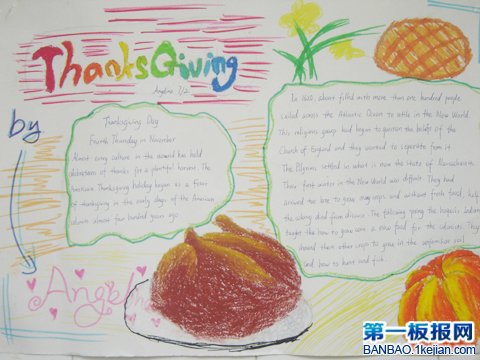 ThanksGiving
Angelina 7.2
by
Angelina
Thanksgiving Day
Fourth Thursday in November
Almost every culture in the world has held
celebrations of thanks for a plentiful harvest. The
American Thanksgiving holiday began as a feast
of thanksgiving in the early days of the American
colonies almost four hundred years ago.
In 1620, a boat filled with more than one hundred people
sailed across the Atlantic Ocean to settle in the New World.
This religious group had begun to question the beliefs of the
Church of England and they wanted to separate from it.
The Pilgrims settled in what is now the state of Massachusetts.
Their first winter in the New World was difficult. They had
arrived too late to grow many crops, and without fresh food, half
the colony died from disease. The following spring the Iroquois Indians
taught them how to grow corn, a new food for the colonists. They
showed them other crops to grow in the unfamiliar soil
and how to hunt and fish.
第一板报网
BANBAO.1kejian.com